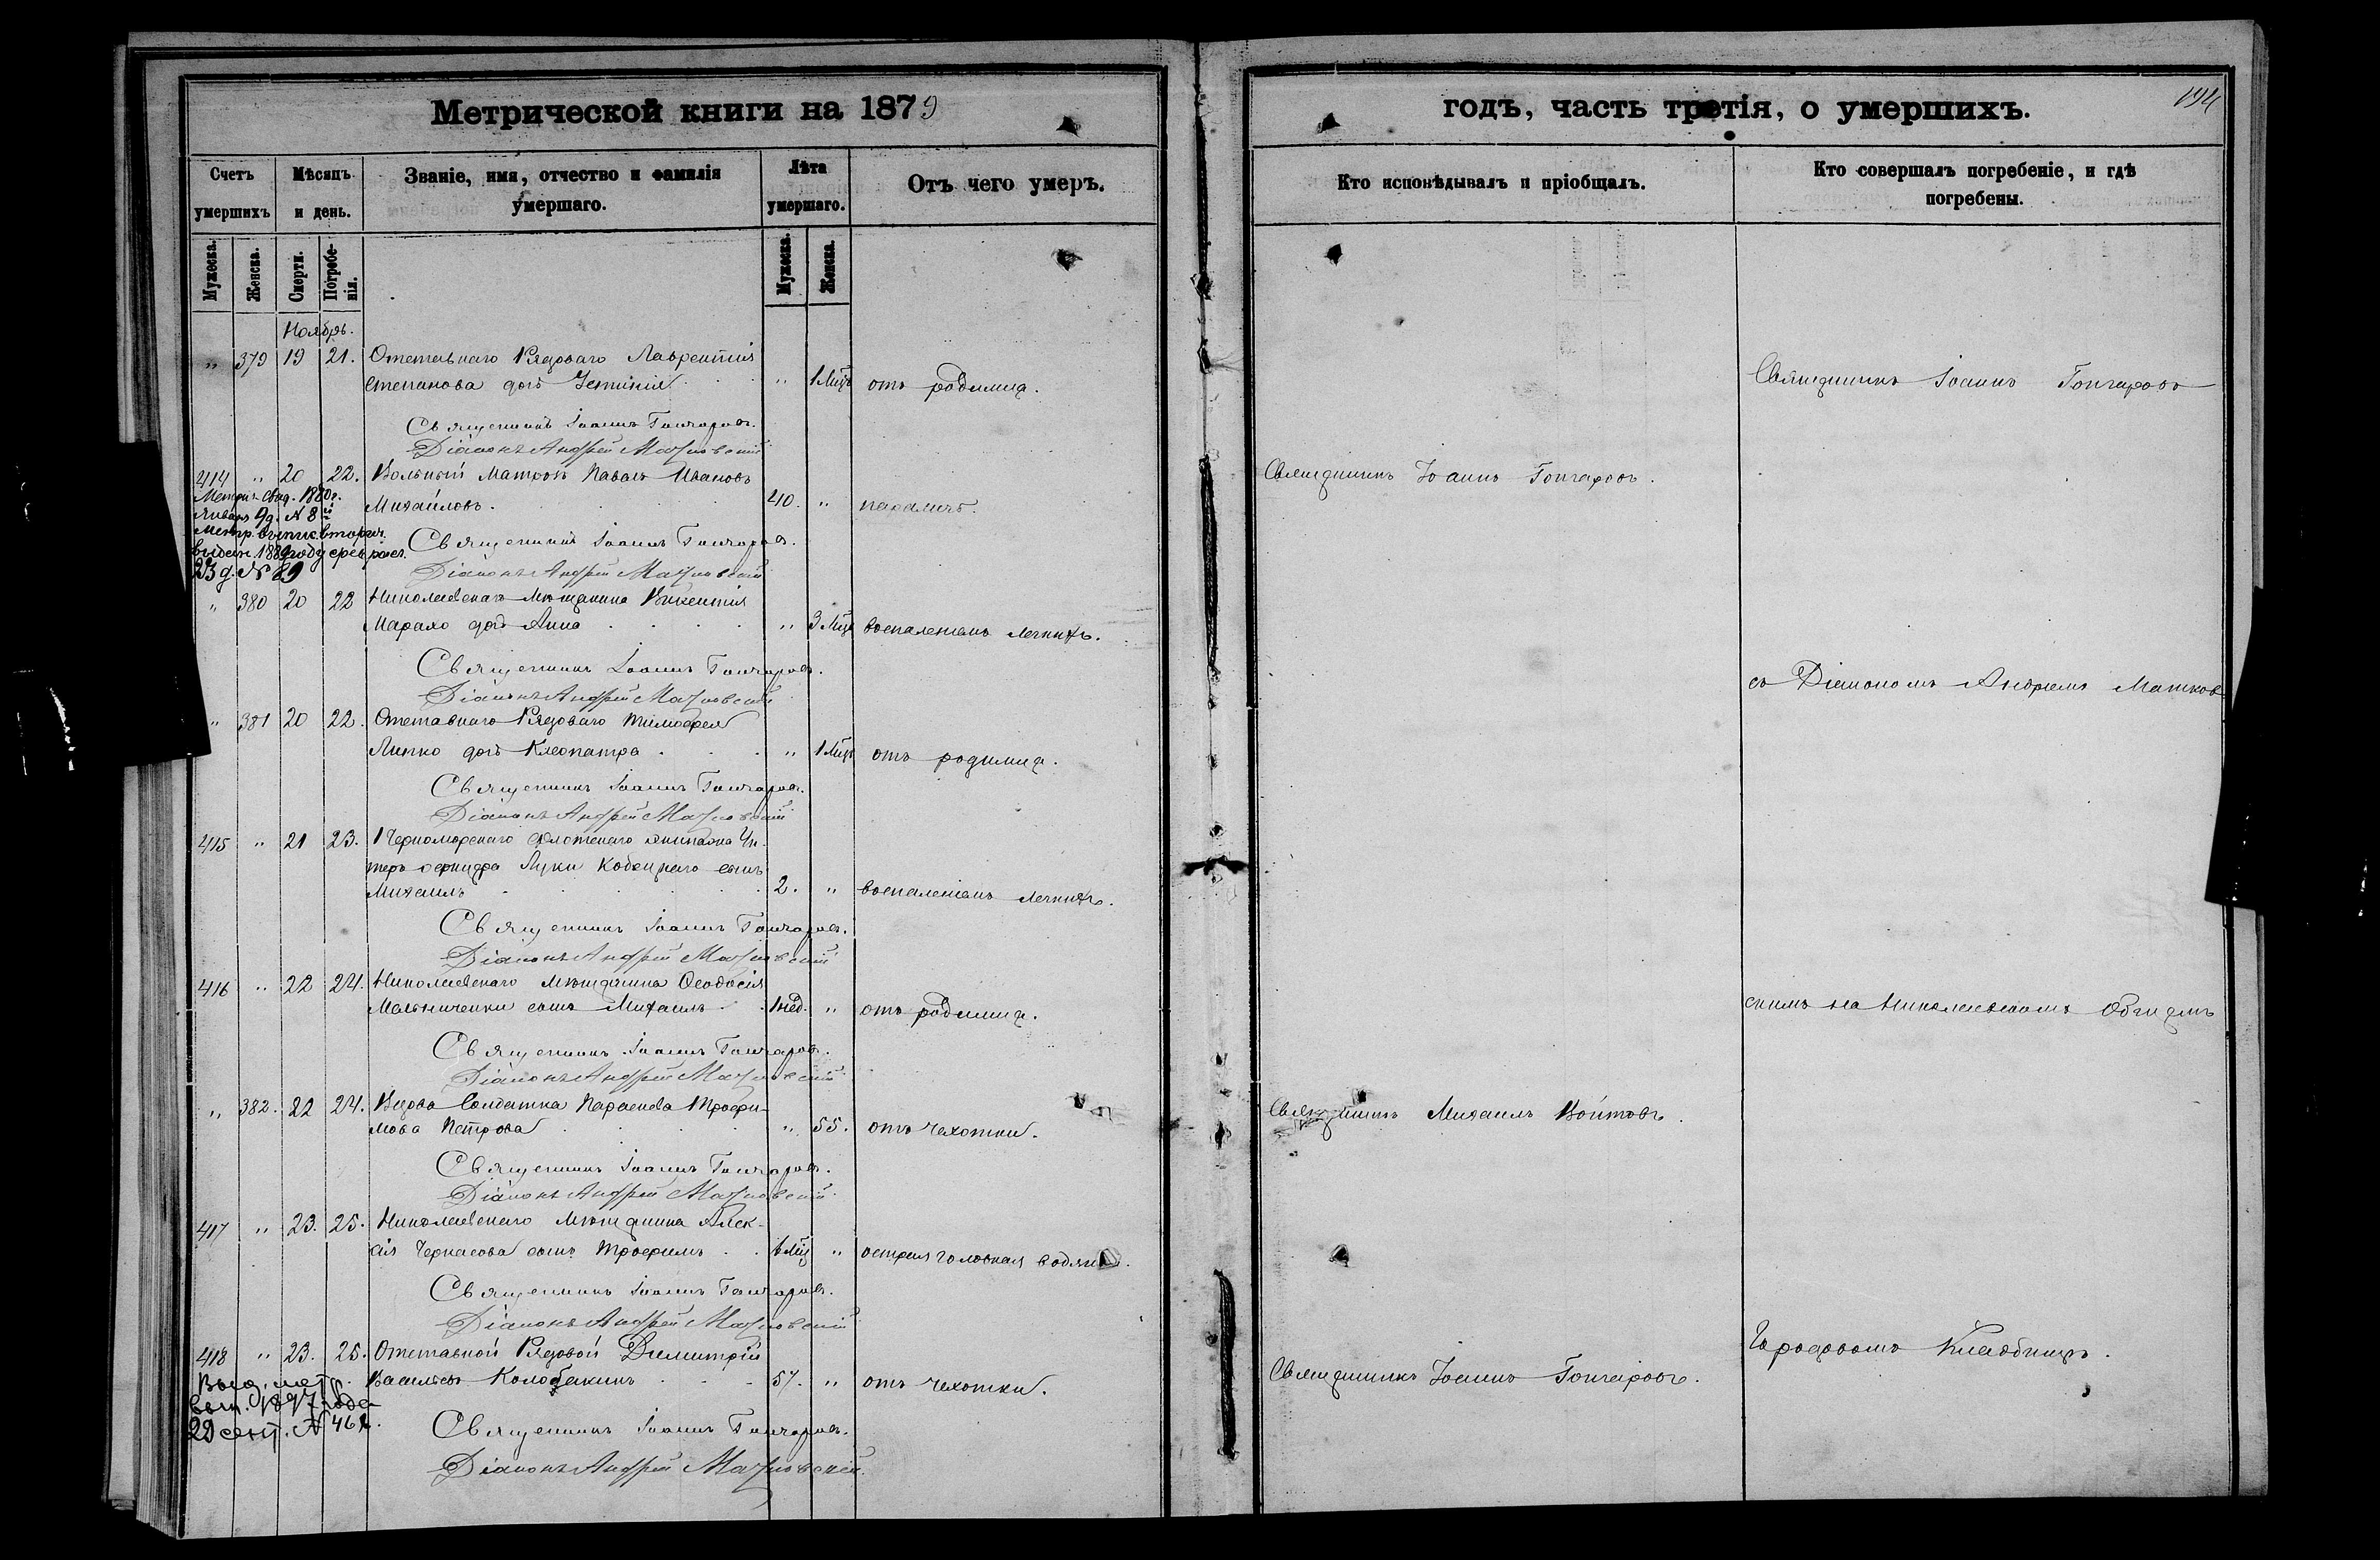 Метрической книги на 1879
годъ, часть третія, о умершихъ.
194
Счетъ умершихъ
Мѣсяцъ и день.
Званіе, имя, отчество и фамилія умершаго.
Лѣта умершаго.
Отъ чего умеръ.
Кто исповѣдывалъ и пріобщалъ.
Кто совершалъ погребеніе, и гдѣ погребены.
Мужеска.
Женска.
Смерти.
Погребенія.
Мужеска.
Женска.
Ноябрь.
" 379 19 21. Отставнаго Рядоваго Лаврентія
Степанова дочь " 1 Мѣс. отъ родимца.
Священникъ Іоаннъ Гончаровъ
Священникъ Іоаннъ Гончаровъ.
Діаконъ Андрей
414 " 20 22. Вольный Матрозъ Павелъ Ивановъ
Священникъ Іоаннъ Гончаровъ.
Михайловъ. 40. "
Января 9 д. № 8
Священникъ Іоаннъ Гончаровъ.
Діаконъ Андрей
23 д. № 89
" 380 20 22 Николаевскаго Мѣщанина Викентія
дочь Анна " 3 Мѣс. воспаленіемъ легкихъ.
Священникъ Іоаннъ Гончаровъ.
Діаконъ Андрей
съ Діакономъ Андреемъ
" 381 20 22. Отставнаго Рядоваго Тимофея
Липко дочь Клеопатра " 1 Мѣс. отъ родимца.
Священникъ Іоаннъ Гончаровъ.
Діаконъ Андрей
415 " 21 23. Черноморскаго флотскаго экипажа Ун-
теръ офицера Луки Кобецкаго сынъ
Михаилъ 2. " воспаленіемъ легкихъ.
Священникъ Іоаннъ Гончаровъ.
Діаконъ Андрей
416 " 22 24. Николаевскаго Мѣщанина Ѳеодосія
Мельниченки сынъ Михаилъ 1 нед. " отъ родимца.
скимъ на Николаевскомъ Общемъ
Священникъ Іоаннъ Гончаровъ.
Діаконъ Андрей
" 382. 22 24. Вдова Солдатка Параскева Трофи-
мова Петрова " 55. отъ чехотки.
Священникъ Михаилъ Войтовъ.
Священникъ Іоаннъ Гончаровъ.
Діаконъ Андрей
417 " 23. 25. Николаевскаго Мѣщанина Алек-
сія Черкасова сынъ Трофимъ " острая головная водянка.
Священникъ Іоаннъ Гончаровъ.
Діаконъ Андрей
418 " 23. 25. Отставной Рядовой Димитрій
Васильевъ Колобакинъ 57. " отъ чехотки.
Священникъ Іоаннъ Гончаровъ.
Городскомъ Кладбищѣ.
1897 года
29 сент. № 461.
Священникъ Іоаннъ Гончаровъ.
Діаконъ Андрей